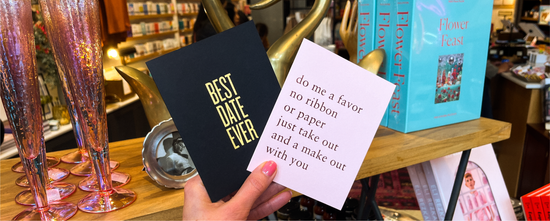 BEST
DATE
EVER
do me a favor
no ribbon
or paper
just take out
and a make out
with you
Flower
Feast
Flower Feast